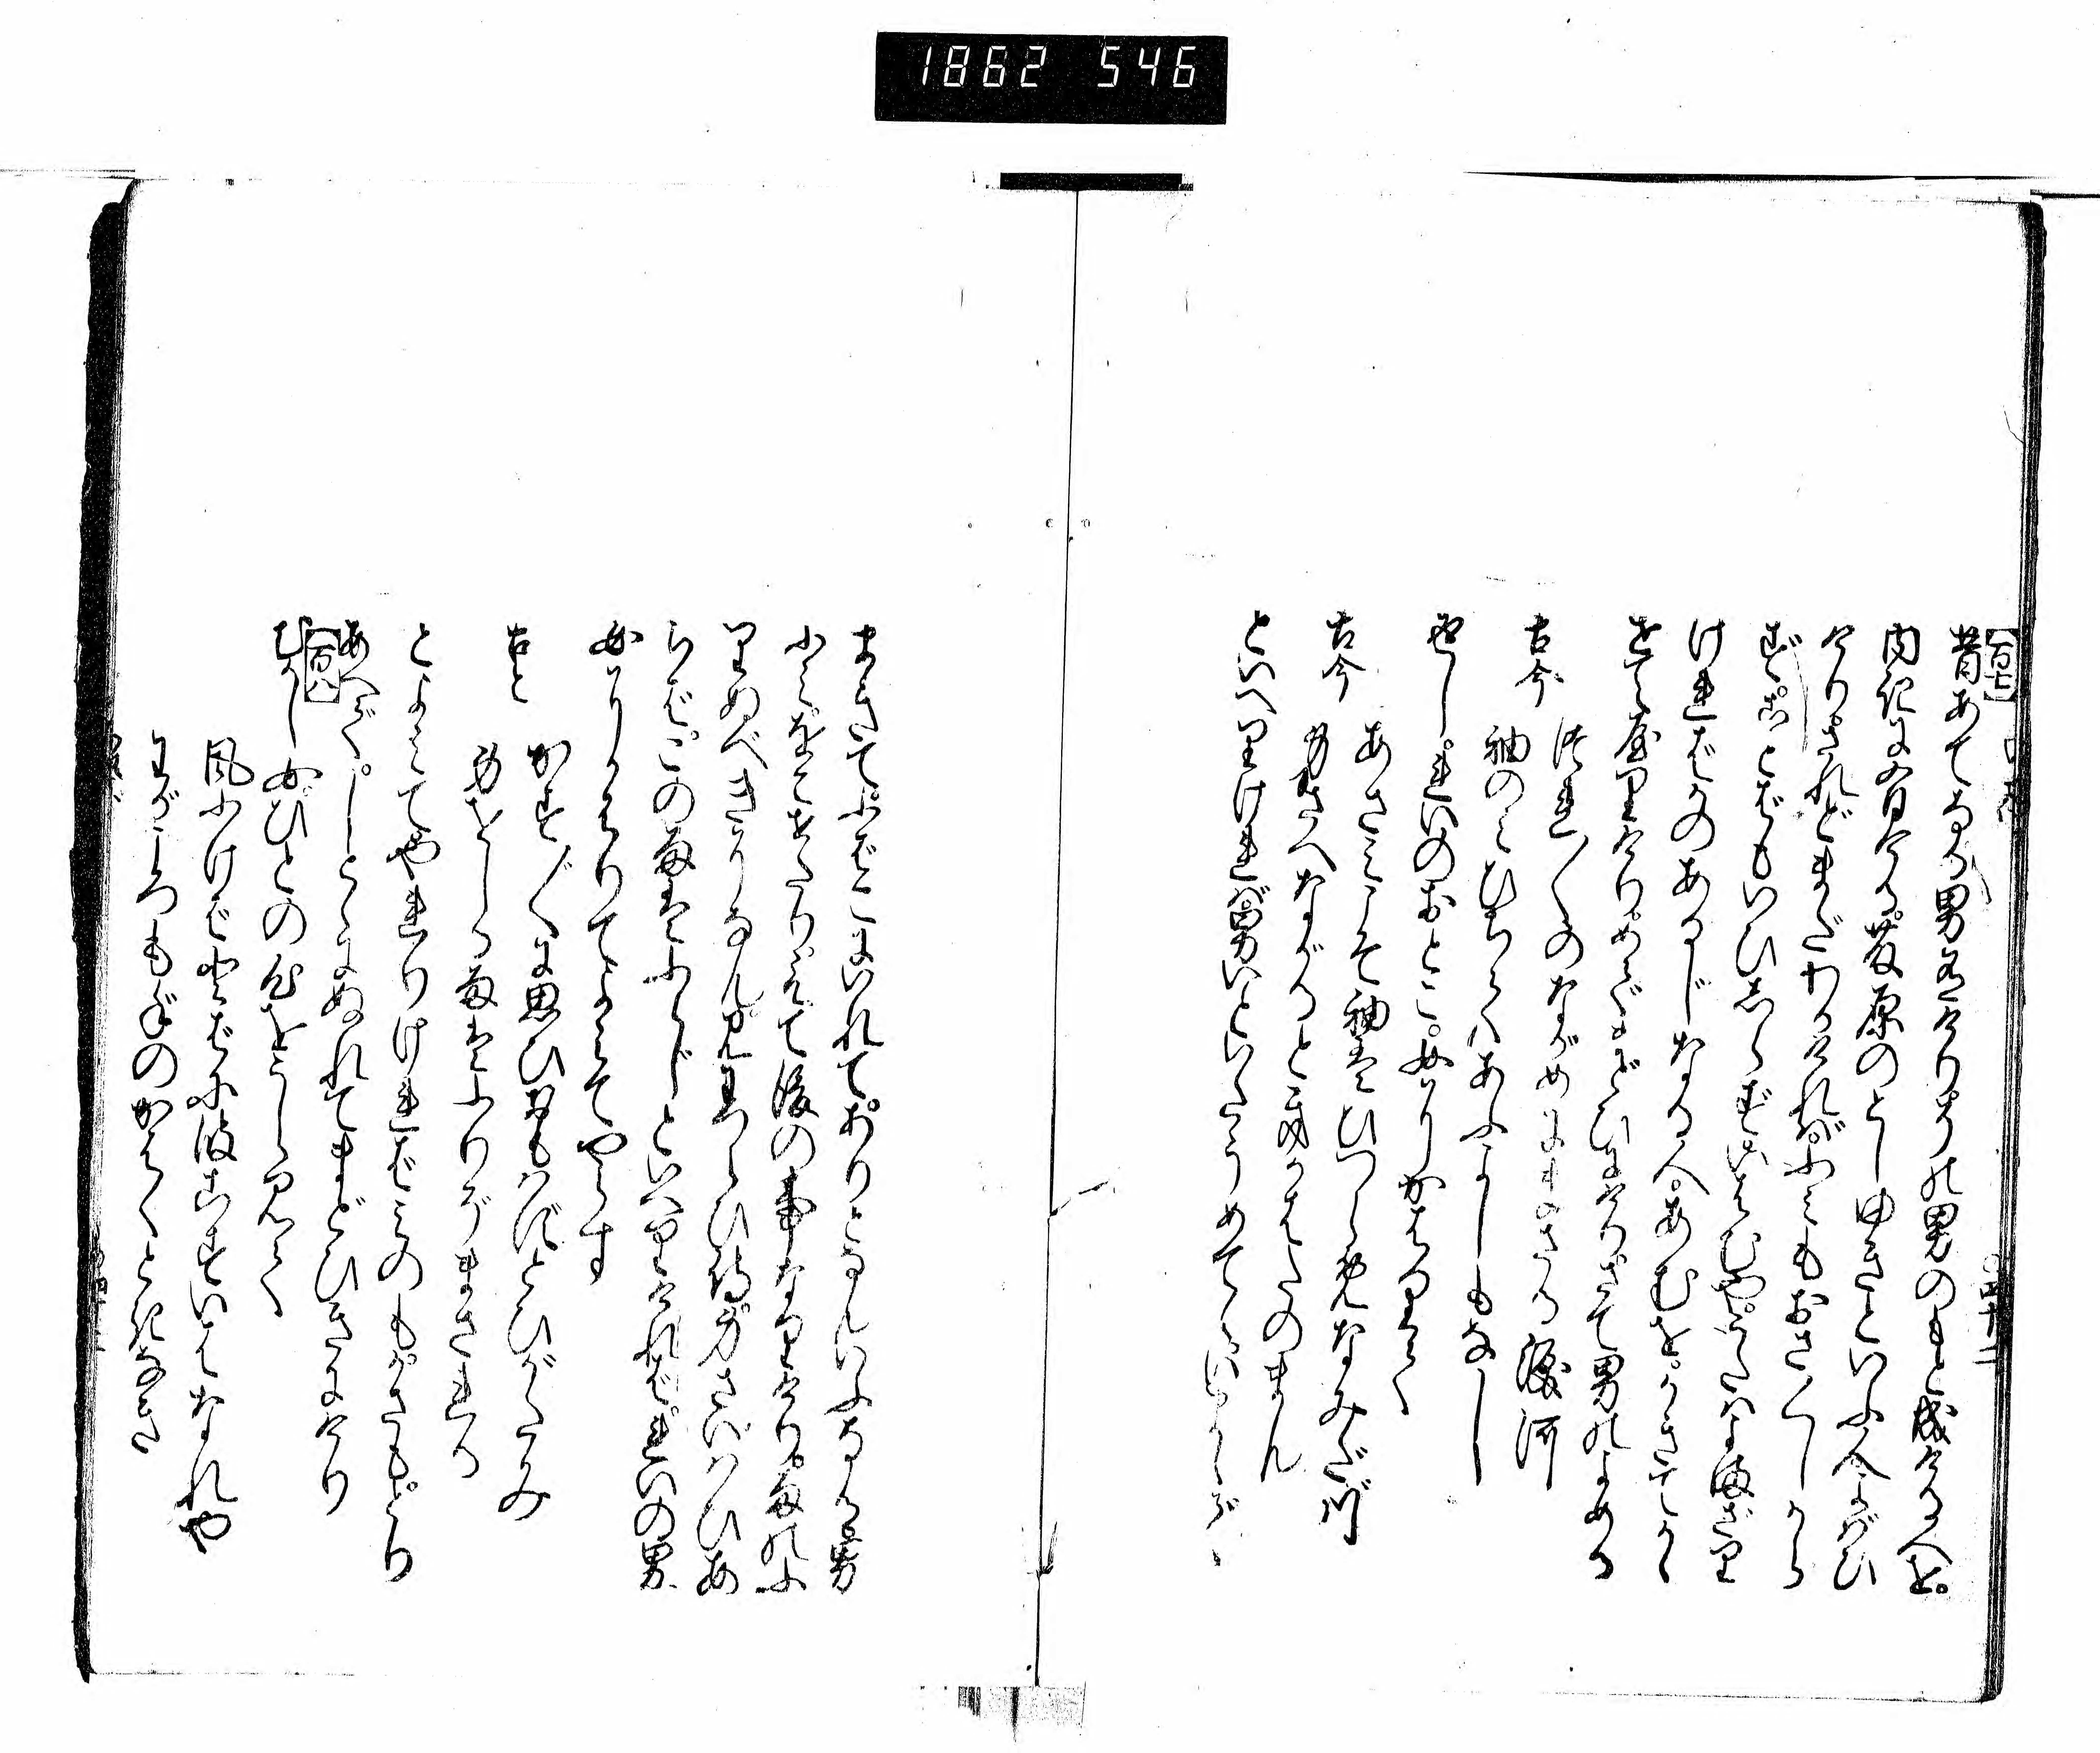 1862 546
【百七】
昔あてなる男有けりその男のもと成ける人を。
内記に有ける。藤原のとしゆきといふ人よばひ
けりされどまだわかければふみもおさ〳〵しから
ず。ことばもいひしらずいはむや。うたはよまざり
ければかのあるじなる人。あむを。かきてかゝ
せてやりけり。めでまどひにけり。さて男のよめる
古今 つれ〴〵のながめにまさる涙河
袖のみひちてあふよしもなし
返し。れいのおとこ。女にかはりて
古今 あさみこそ袖はひつらめなみだ川
身さへながると聞かばたのまん
といへりければ。男いといたうめでゝ。いまゝで。
まきてふばこにいれて。ありとなんいふなる。男
ふみをこせたり。えて後の事なりけり。雨のふ
りぬべきになん。見わづらひ侍。身さいはひあ
らば。この雨はふらじといへりければ。れいの男。
女にかはりてよみてやらす
古今 かず〳〵に思ひおもはずとひがたみ
身をしる雨はふりぞまされる
とよみてやれりければ。みのもかさも。とり
あへで。しとゞにぬれてまどひきにけり
【百八】
むかし女ひとの心をうらみて
風ふけばとはに波こすいはなれや
わがころもでのかはくときなき